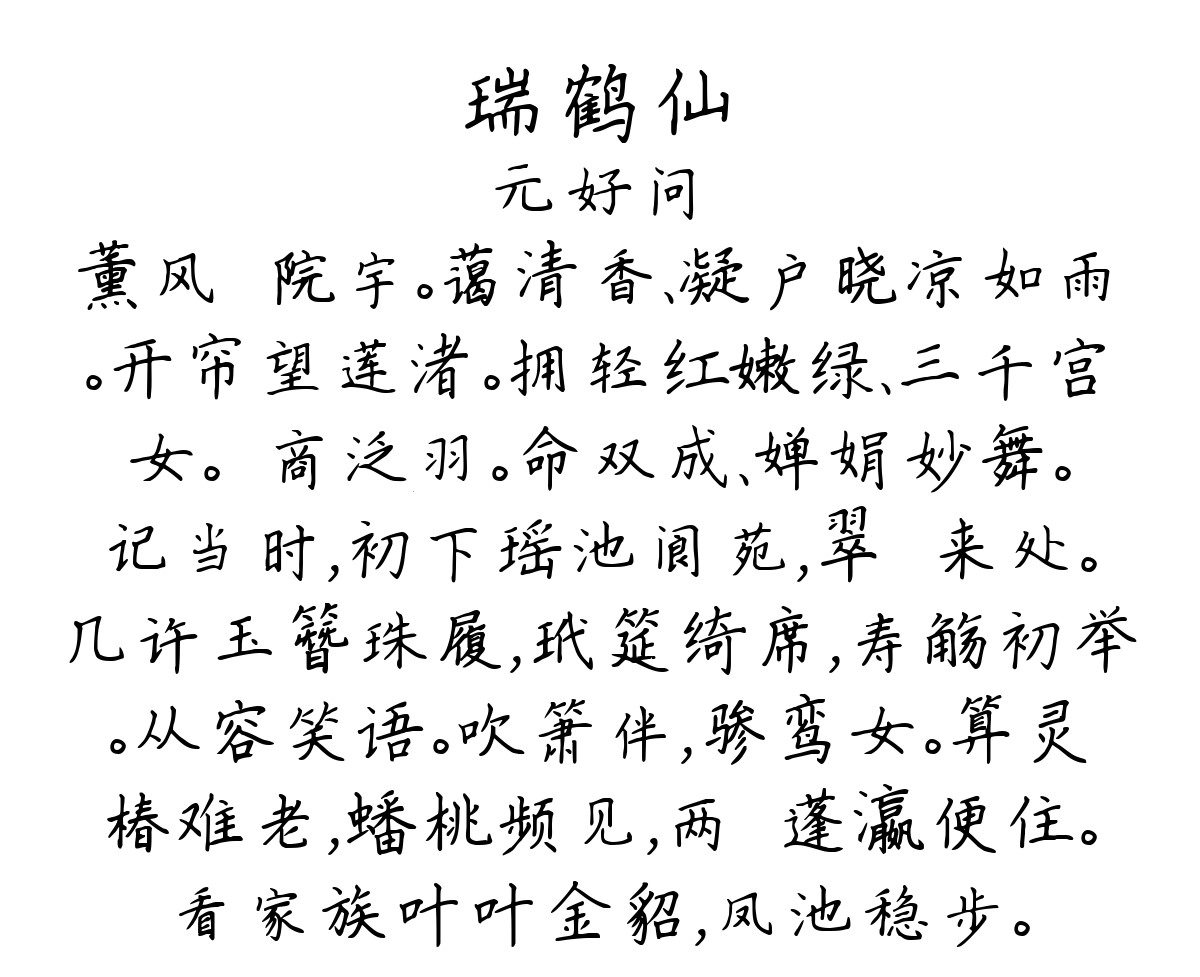 瑞鹤仙
元好问
薰风 院宇。蔼清香、凝户晓凉如雨
。开帘望莲渚。拥轻红嫩绿、三千宫
女。商泛羽。命双成、婵娟妙舞。
记当时,初下瑶池阆苑,翠 来处。
几许玉簪珠履,玳筵绮席,寿觞初举
。从容笑语。吹箫伴,骖鸾女。算灵
椿难老,蟠桃频见,两 蓬瀛便住。
看家族叶叶金貂,凤池稳步。